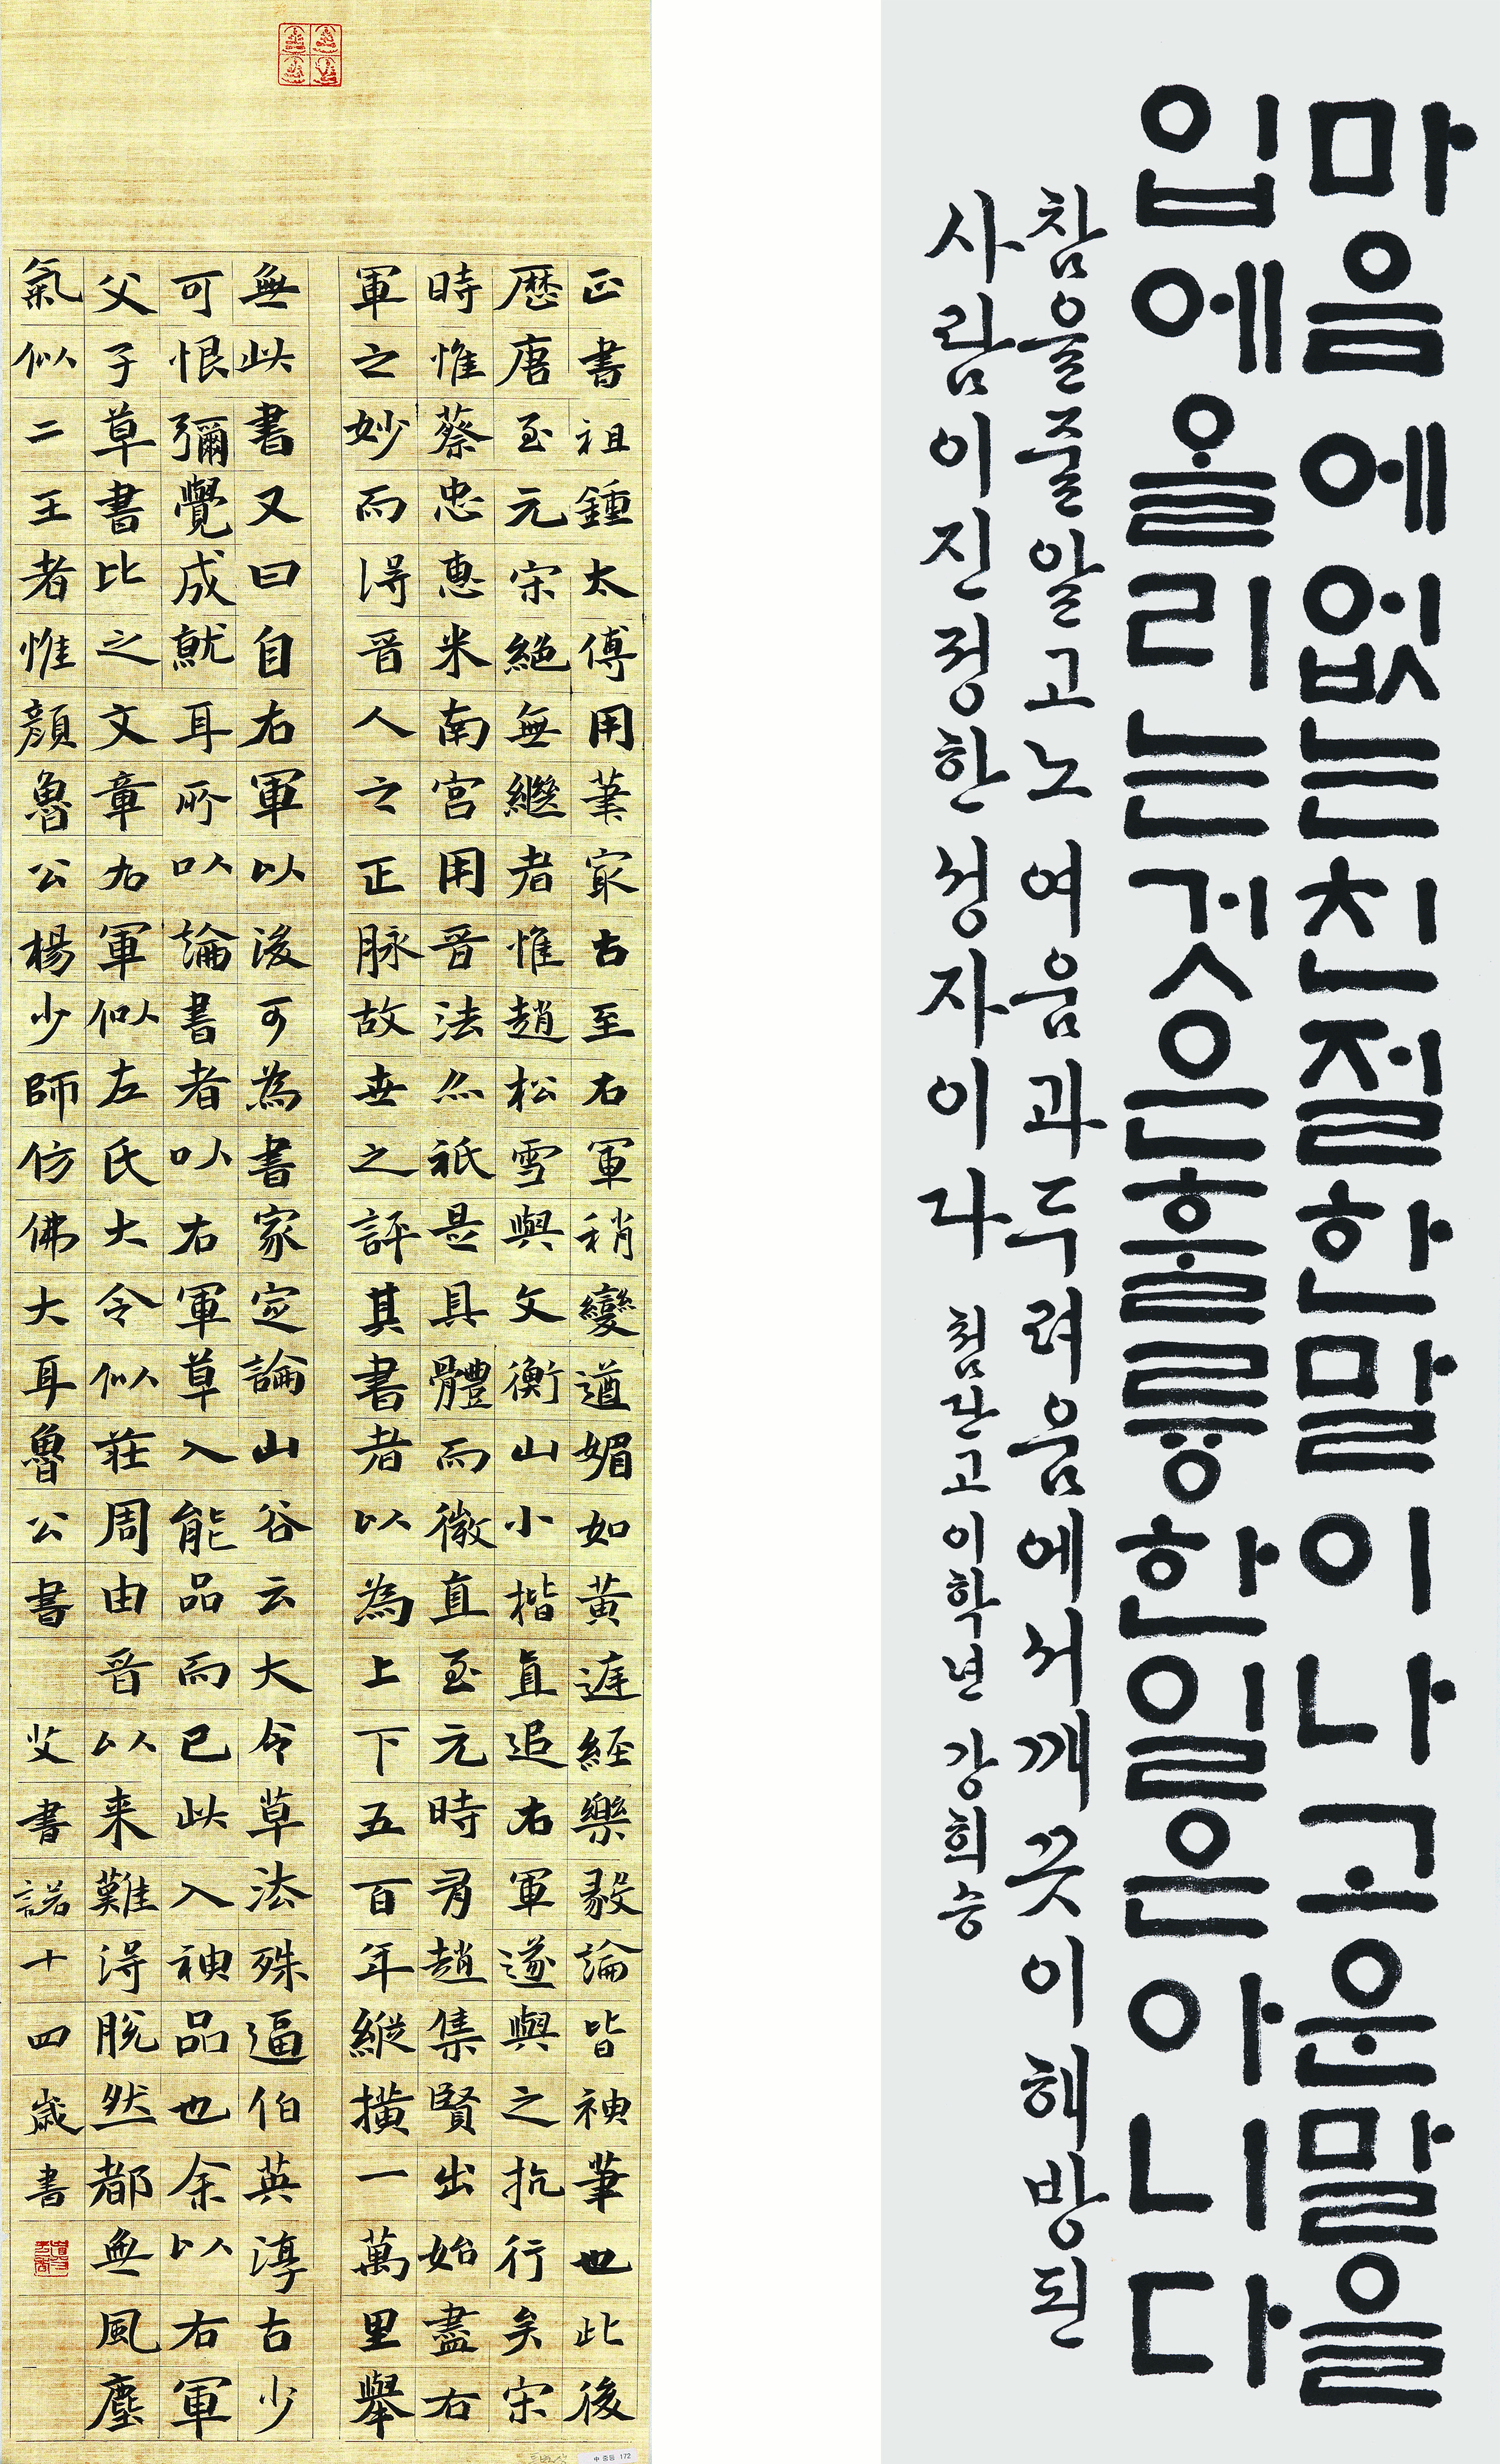 正書祖鍾太傅用筆冣古至右軍稍變遒媚如黃庭經樂毅論皆神筆也此後
歷唐至元宋絕無繼者惟趙松雪與文衡山小楷直追右軍遂與之抗行矣宋
時惟蔡忠惠米南宮用晉法亦祗是具體而微直至元時有趙集賢出始盡右
軍之妙而得晉人之正脉故世之評其書者以為上下五百年縱橫一萬里舉
無此書又曰自右軍以後可為書家定論山谷云大令草法殊逼伯英淳古少
可恨彌覺成就耳所以論書者以右軍草入能品而已此入神品也余以右軍
父子草書比之文章右軍似左氏大令似莊周由晉以来難得脫然都無風塵
氣似二王者惟顏魯公楊少師仿佛大耳魯公書 艾書諾十四歲書
中 중등 172
마음에없는친절한말이나고운말을
입에올리는것은훌륭한일은아니다
참을줄알고노여움과두려움에서깨끗이해방된
사람이진정한성자이다 첨단고이학년 강희승